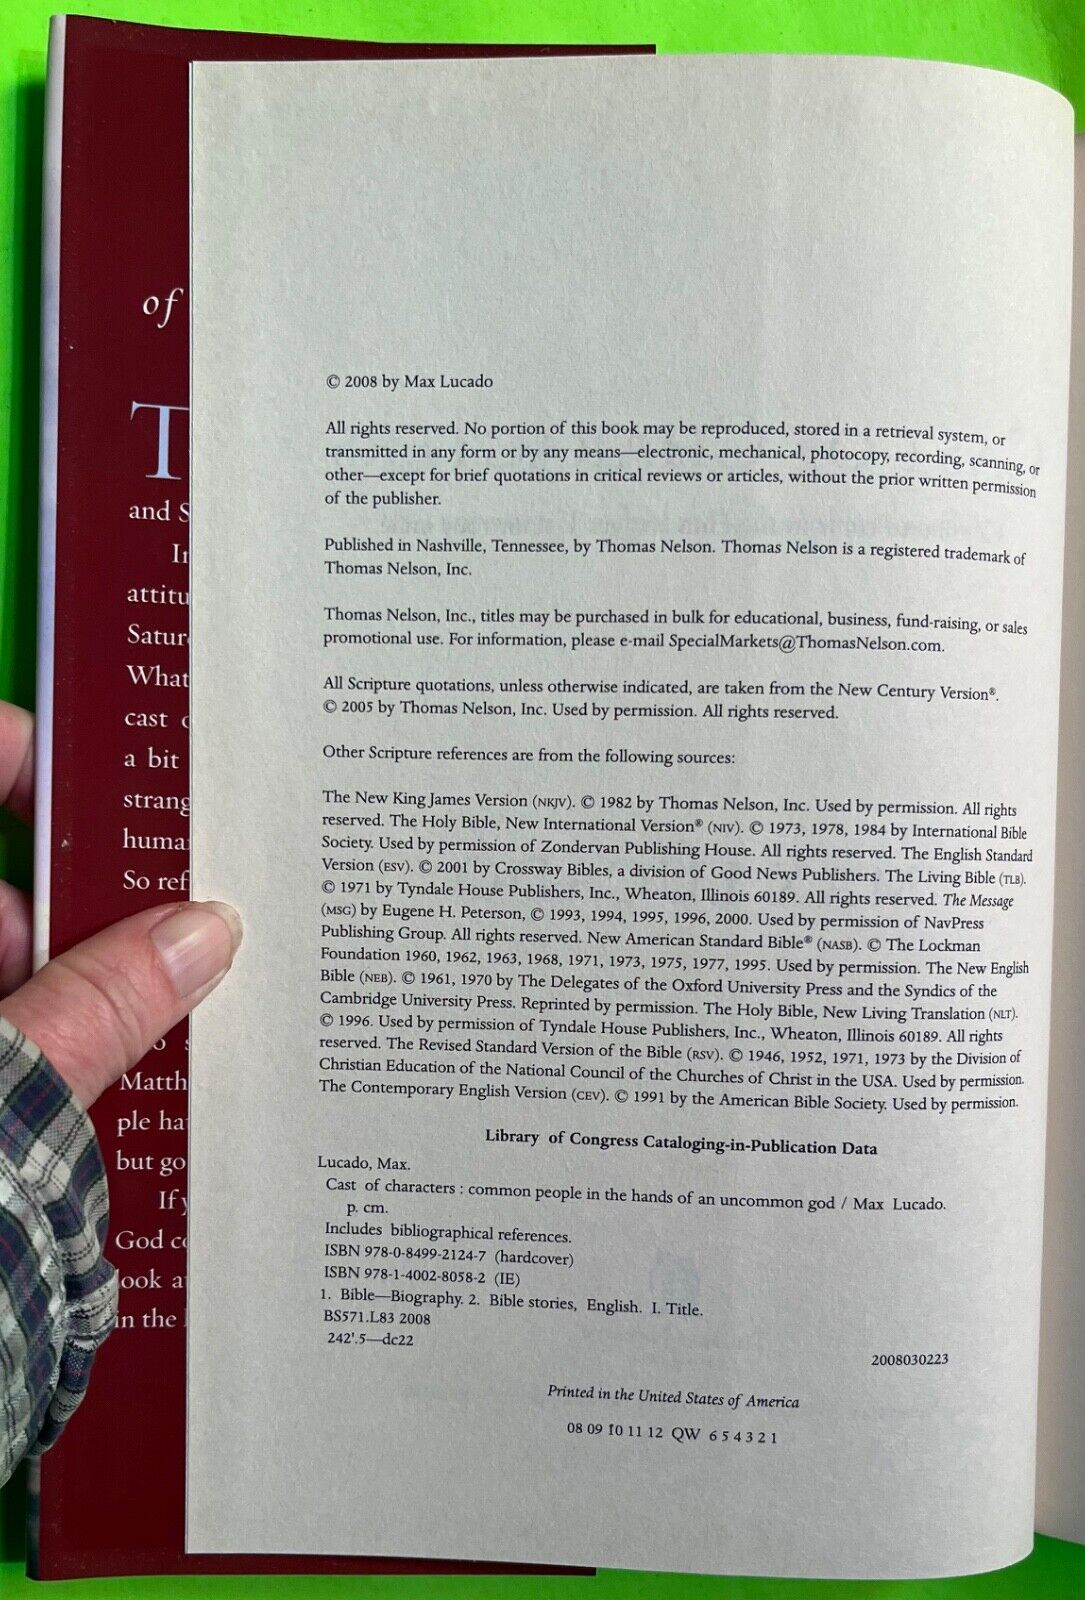 of
T
and S
In
attitu
Satur
What
cast
a bit
strang
huma
So ref
Matth
ple ha
but go
If y
God co
look a
in the
© 2008 by Max Lucado
All rights reserved. No portion of this book may be reproduced, stored in a retrieval system, or
transmitted in any form or by any means—electronic, mechanical, photocopy, recording, scanning, or
other—except for brief quotations in critical reviews or articles, without the prior written permission
of the publisher.
Published in Nashville, Tennessee, by Thomas Nelson. Thomas Nelson is a registered trademark of
Thomas Nelson, Inc.
Thomas Nelson, Inc., titles may be purchased in bulk for educational, business, fund-raising, or sales
promotional use. For information, please e-mail SpecialMarkets@ThomasNelson.com.
All Scripture quotations, unless otherwise indicated, are taken from the New Century Version®.
© 2005 by Thomas Nelson, Inc. Used by permission. All rights reserved.
Other Scripture references are from the following sources:
The New King James Version (NKJV). © 1982 by Thomas Nelson, Inc. Used by permission. All rights
reserved. The Holy Bible, New International Version® (NIV). © 1973, 1978, 1984 by International Bible
Society. Used by permission of Zondervan Publishing House. All rights reserved. The English Standard
Version (ESV). © 2001 by Crossway Bibles, a division of Good News Publishers. The Living Bible (TLB).
© 1971 by Tyndale House Publishers, Inc., Wheaton, Illinois 60189. All rights reserved. The Message
(MSG) by Eugene H. Peterson, © 1993, 1994, 1995, 1996, 2000. Used by permission of NavPress
Publishing Group. All rights reserved. New American Standard Bible® (NASB). © The Lockman
Foundation 1960, 1962, 1963, 1968, 1971, 1973, 1975, 1977, 1995. Used by permission. The New English
Bible (NEB). © 1961, 1970 by The Delegates of the Oxford University Press and the Syndics of the
Cambridge University Press. Reprinted by permission. The Holy Bible, New Living Translation (NLT).
© 1996. Used by permission of Tyndale House Publishers, Inc., Wheaton, Illinois 60189. All rights
reserved. The Revised Standard Version of the Bible (RSV). © 1946, 1952, 1971, 1973 by the Division of
Christian Education of the National Council of the Churches of Christ in the USA. Used by permission.
The Contemporary English Version (CEV). © 1991 by the American Bible Society. Used by permission.
Library of Congress Cataloging-in-Publication Data
Lucado, Max.
Cast of characters : common people in the hands of an uncommon god / Max Lucado.
p. cm.
Includes bibliographical references.
ISBN 978-0-8499-2124-7 (hardcover)
ISBN 978-1-4002-8058-2 (IE)
1. Bible—Biography. 2. Bible stories, English. I. Title.
BS571.L83 2008
242'.5—dc22
2008030223
Printed in the United States of America
08 09 10 11 12 QW 6 5 4 3 2 1